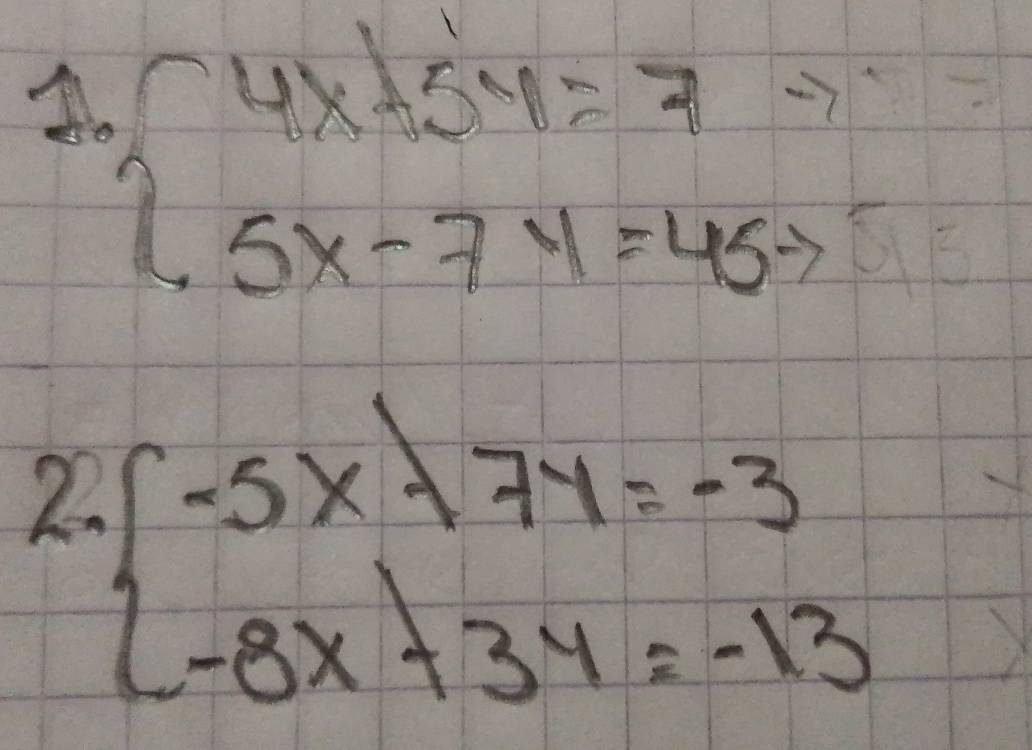 1. { 4x+5y=7 →
5x-7y=45→
2. { -5x+7y=-3
-8x+3y=-13